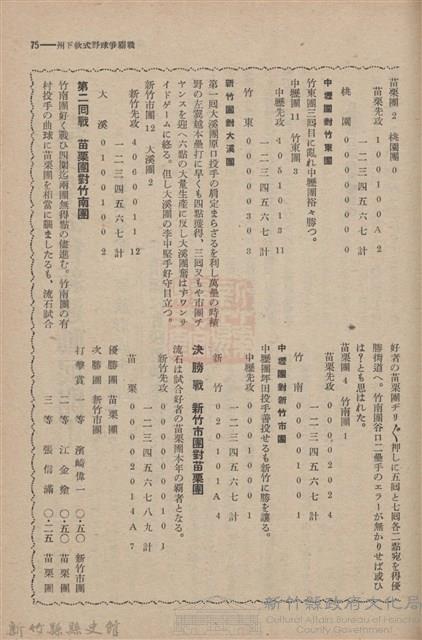 75——州下軟式野球爭覇戰
苗栗團2 桃園團0
一二三四五六七計
苗栗先攻 1 0 0 1 0 0 A 2
桃園 0 0 0 0 0 0 0 0
中壢團對竹東團
竹東團三回目に亂れ中壢團裕々勝つ。
中壢團11 竹東團3
一二三四五六七計
中壢先攻 4 0 5 1 0 1 3 11
竹東 0 0 0 0 3 0 3
新竹團對大溪團
第一回大溪團原口投手の肩定まらざるを利し萬壘の時植
野の左翼越本壘打に早くも四點獲得、三回又もや市團チ
ヤンスを迎へ六點の大量生産に反し大溪團奮はずワンサ
イドゲームに終る。但し大溪團の李中堅手好守目立つ。
新竹市團12 大溪團2
一二三四五六七計
新竹先攻 4 0 6 0 1 1 12
大溪 0 0 1 0 1 0 2
第二回戰 苗栗團對竹南團
竹南團好く戰ひ四回迄兩團無得點の儘進む。竹南團の有
村投手の曲球に苗栗團を相當に惱ましたるも、流石試合
好者の苗栗團ヂリ〱押しに五回と七回各二點宛を得優
勝街道へ。竹南團谷口二壘手のエラーが無かりせば或ひ
は？とも思はれた。
苗栗團4 竹南團1
一二三四五六七計
苗栗先攻 0 0 0 0 2 0 2 4
竹南 0 0 0 0 0 0 1 1
中壢團對新竹市團
中壢團坪田投手善投せるも新竹に勝を讓る。
一二三四五六七計
中壢先攻 0 0 0 1 0 0 0 1
新竹 0 2 0 1 0 1 A 4
決勝戰 新竹市團對苗栗團
流石は試合好者の苗栗團本年の覇者となる。
一二三四五六七八九計
新竹先攻 0 0 0 0 0 0 0 1 0 1
苗栗 0 0 0 0 2 0 1 4 A 7
優勝團 苗栗團
次勝團 新竹市團
打擊賞 一等 濱崎偉一 〇・五〇 新竹市團
二等 江金燴 〇・五〇 苗栗團
三等 張信滿 〇・二五 苗栗團
新竹縣政府文化局
Cultural Affairs Bureau of Hsinchu
County Government
新竹縣縣史館